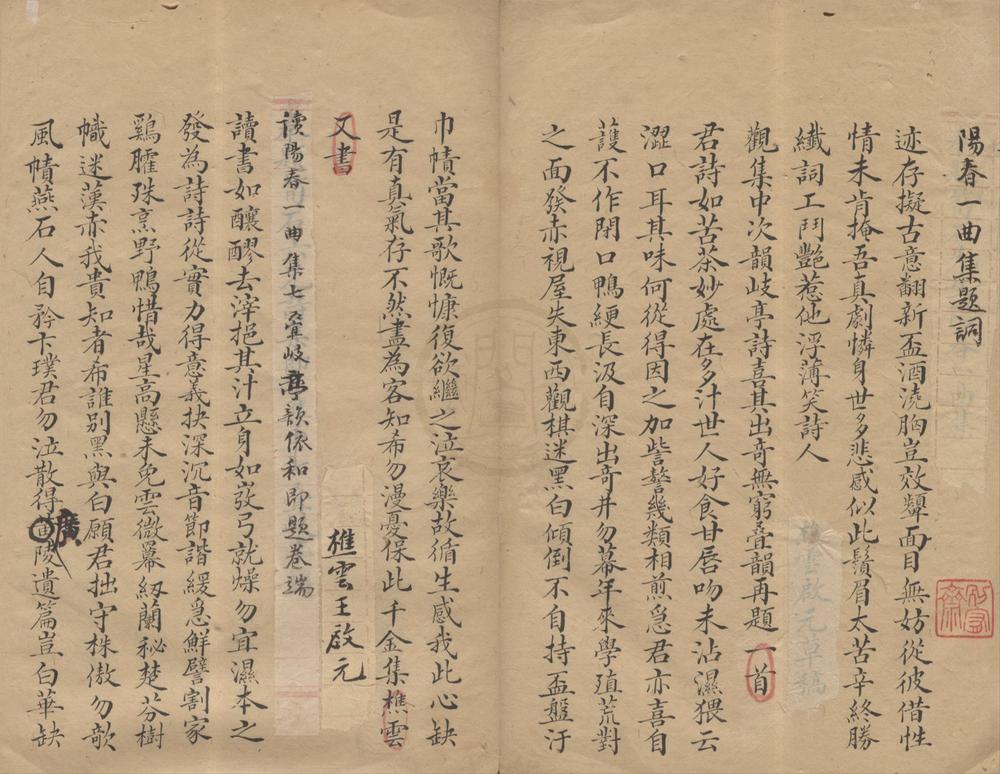 陽春一曲集題詞
迹存擬古意翻新盃酒澆胸豈效顰面目無妨從彼借性
情未肯掩吾真劇憐身世多悲感似此鬚眉太苦辛終勝
纖詞工鬥艷惹他浮薄笑詩人
觀集中次韻岐亭詩喜其出奇無窮疊韻再題一首
君詩如苦茶妙處在多汁世人好食甘唇吻未沾濕猥云
澀口耳其味何從得因之加訾謷幾類相煎急君亦喜自
護不作閉口鴨綆長汲自深出奇井勿冪年來學殖荒對
之面發赤視屋失東西觀棋迷黑白傾倒不自持盃盤汙
巾幘當其歌慨慷復欲繼之泣哀樂故循生感我此心缺
是有真氣存不然盡為客知希勿漫憂保此千金集樵雲
又書
樵雲王啟元
讀陽春一曲集七疊岐亭韻依和即題卷端
讀書如釀醪去滓挹其汁立身如彀弓就燥勿宜濕本之
發為詩詩從實力得意義抉深沉音節諧緩急鮮譬割家
鷄臛殊烹野鴨惜哉星高懸未免雲微冪紉蘭秘楚芬樹
幟迷漢赤我貴知者希誰別黑與白願君拙守株傲勿欹
風幘燕石人自矜卞璞君勿泣散得廣陵遺篇豈白華缺